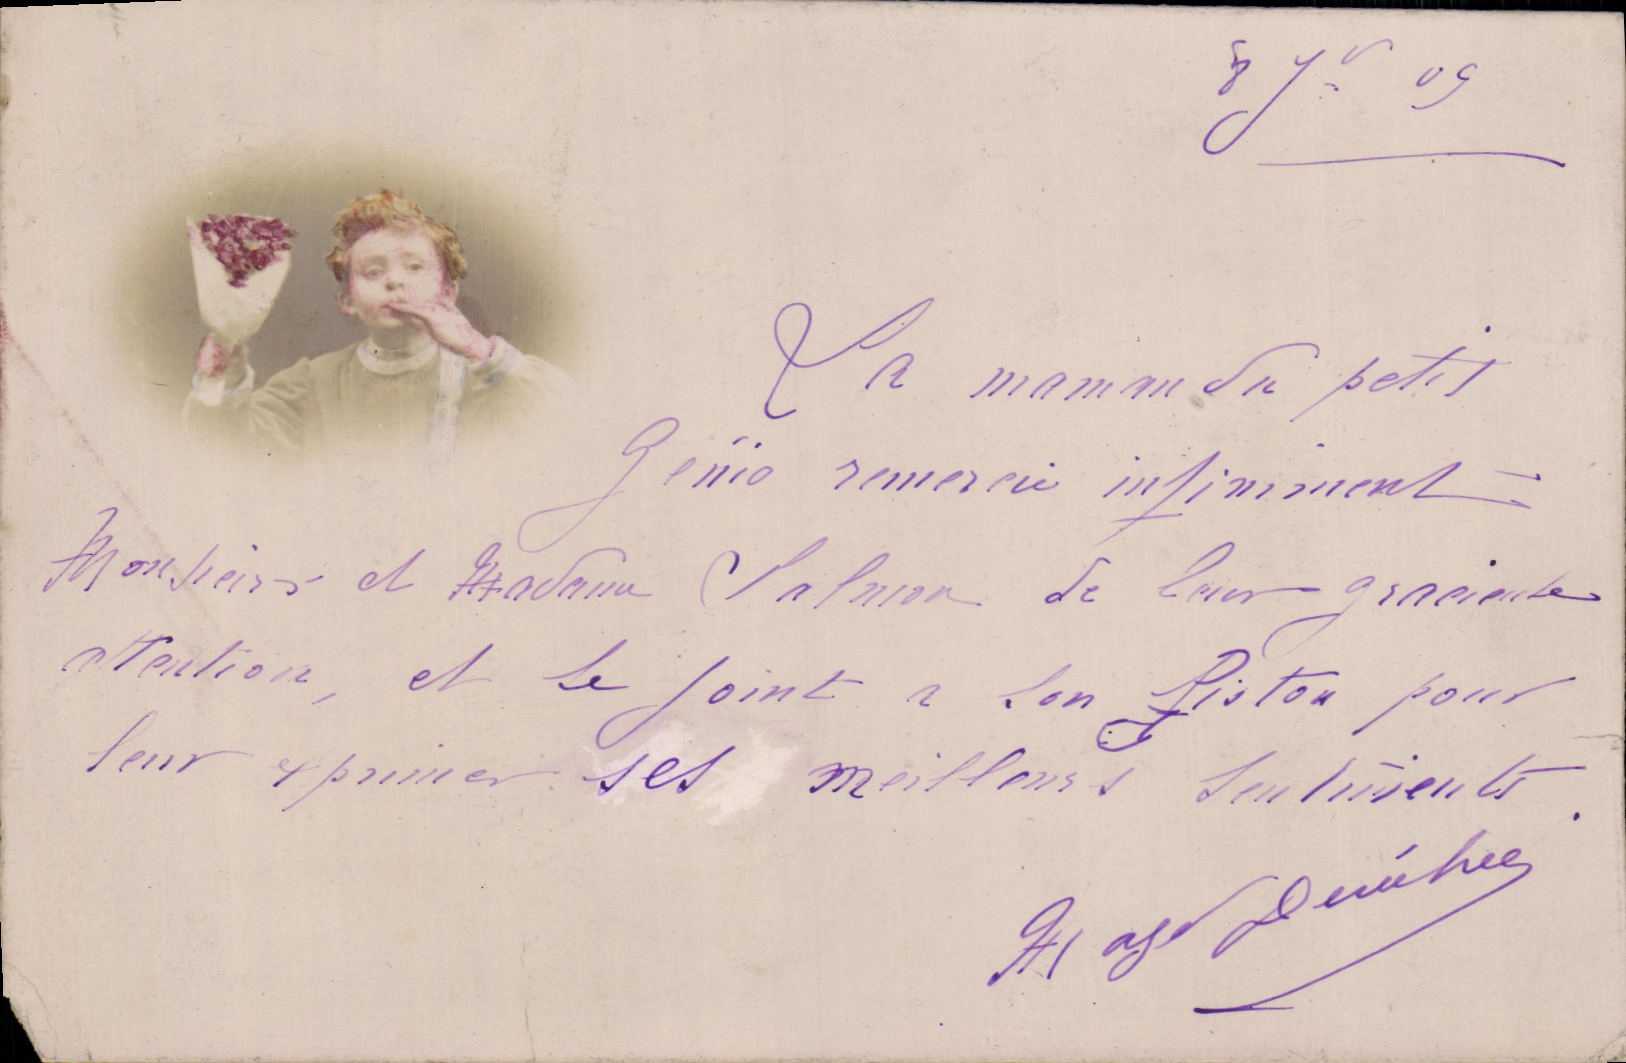 8 Jr 09
La maman du petit
Génio remercie infiniment
Monsieur et Madame Salmon de leur gracieuse
attention, et se joint a son Piston pour
leur exprimer ses meilleurs sentiments.
Magd